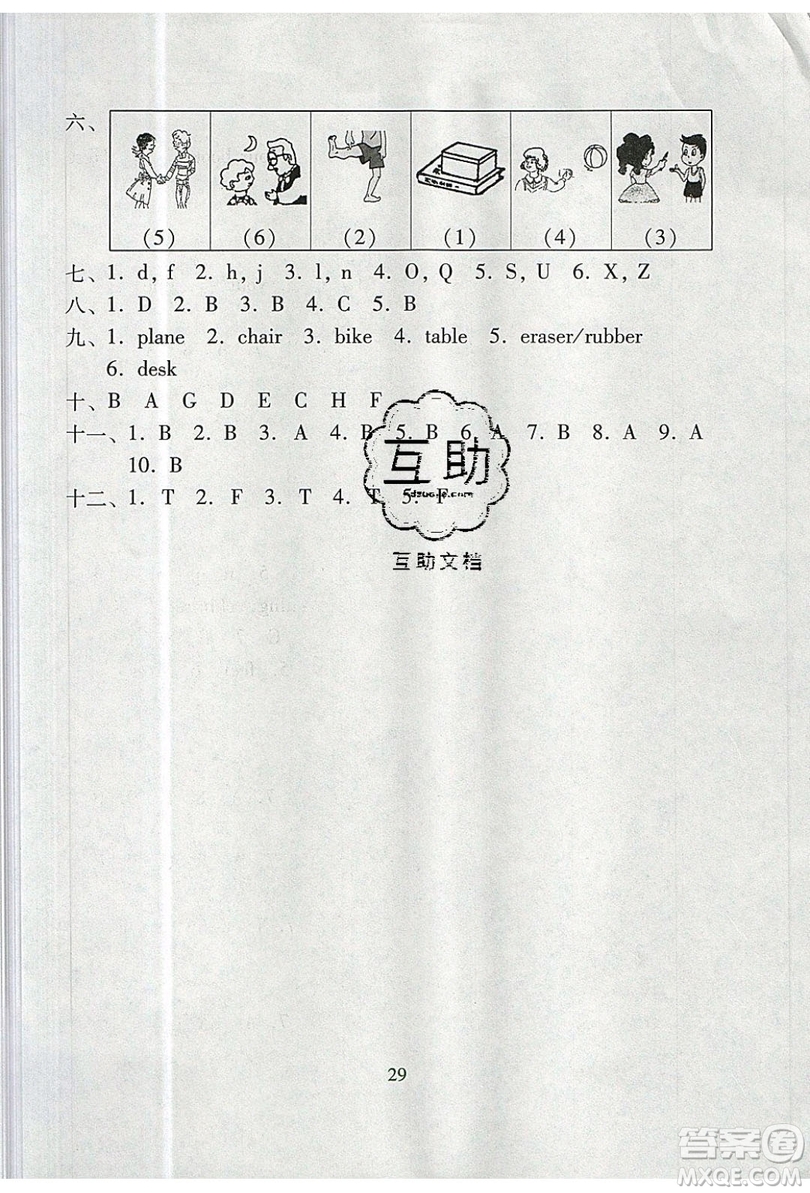 六、
(5) (6) (2) (1) (4) (3)
七、1. d, f 2. h, j 3. l, n 4. O, Q 5. S, U 6. X, Z
八、1. D 2. B 3. B 4. C 5. B
九、1. plane 2. chair 3. bike 4. table 5. eraser/rubber
6. desk
十、B A G D E C H F
十一、1. B 2. B 3. A 4. B 5. B 6. A 7. B 8. A 9. A
10. B
十二、1. T 2. F 3. T 4. T 5. F
互助
互助文档
29
答案圈
MXQE.COM